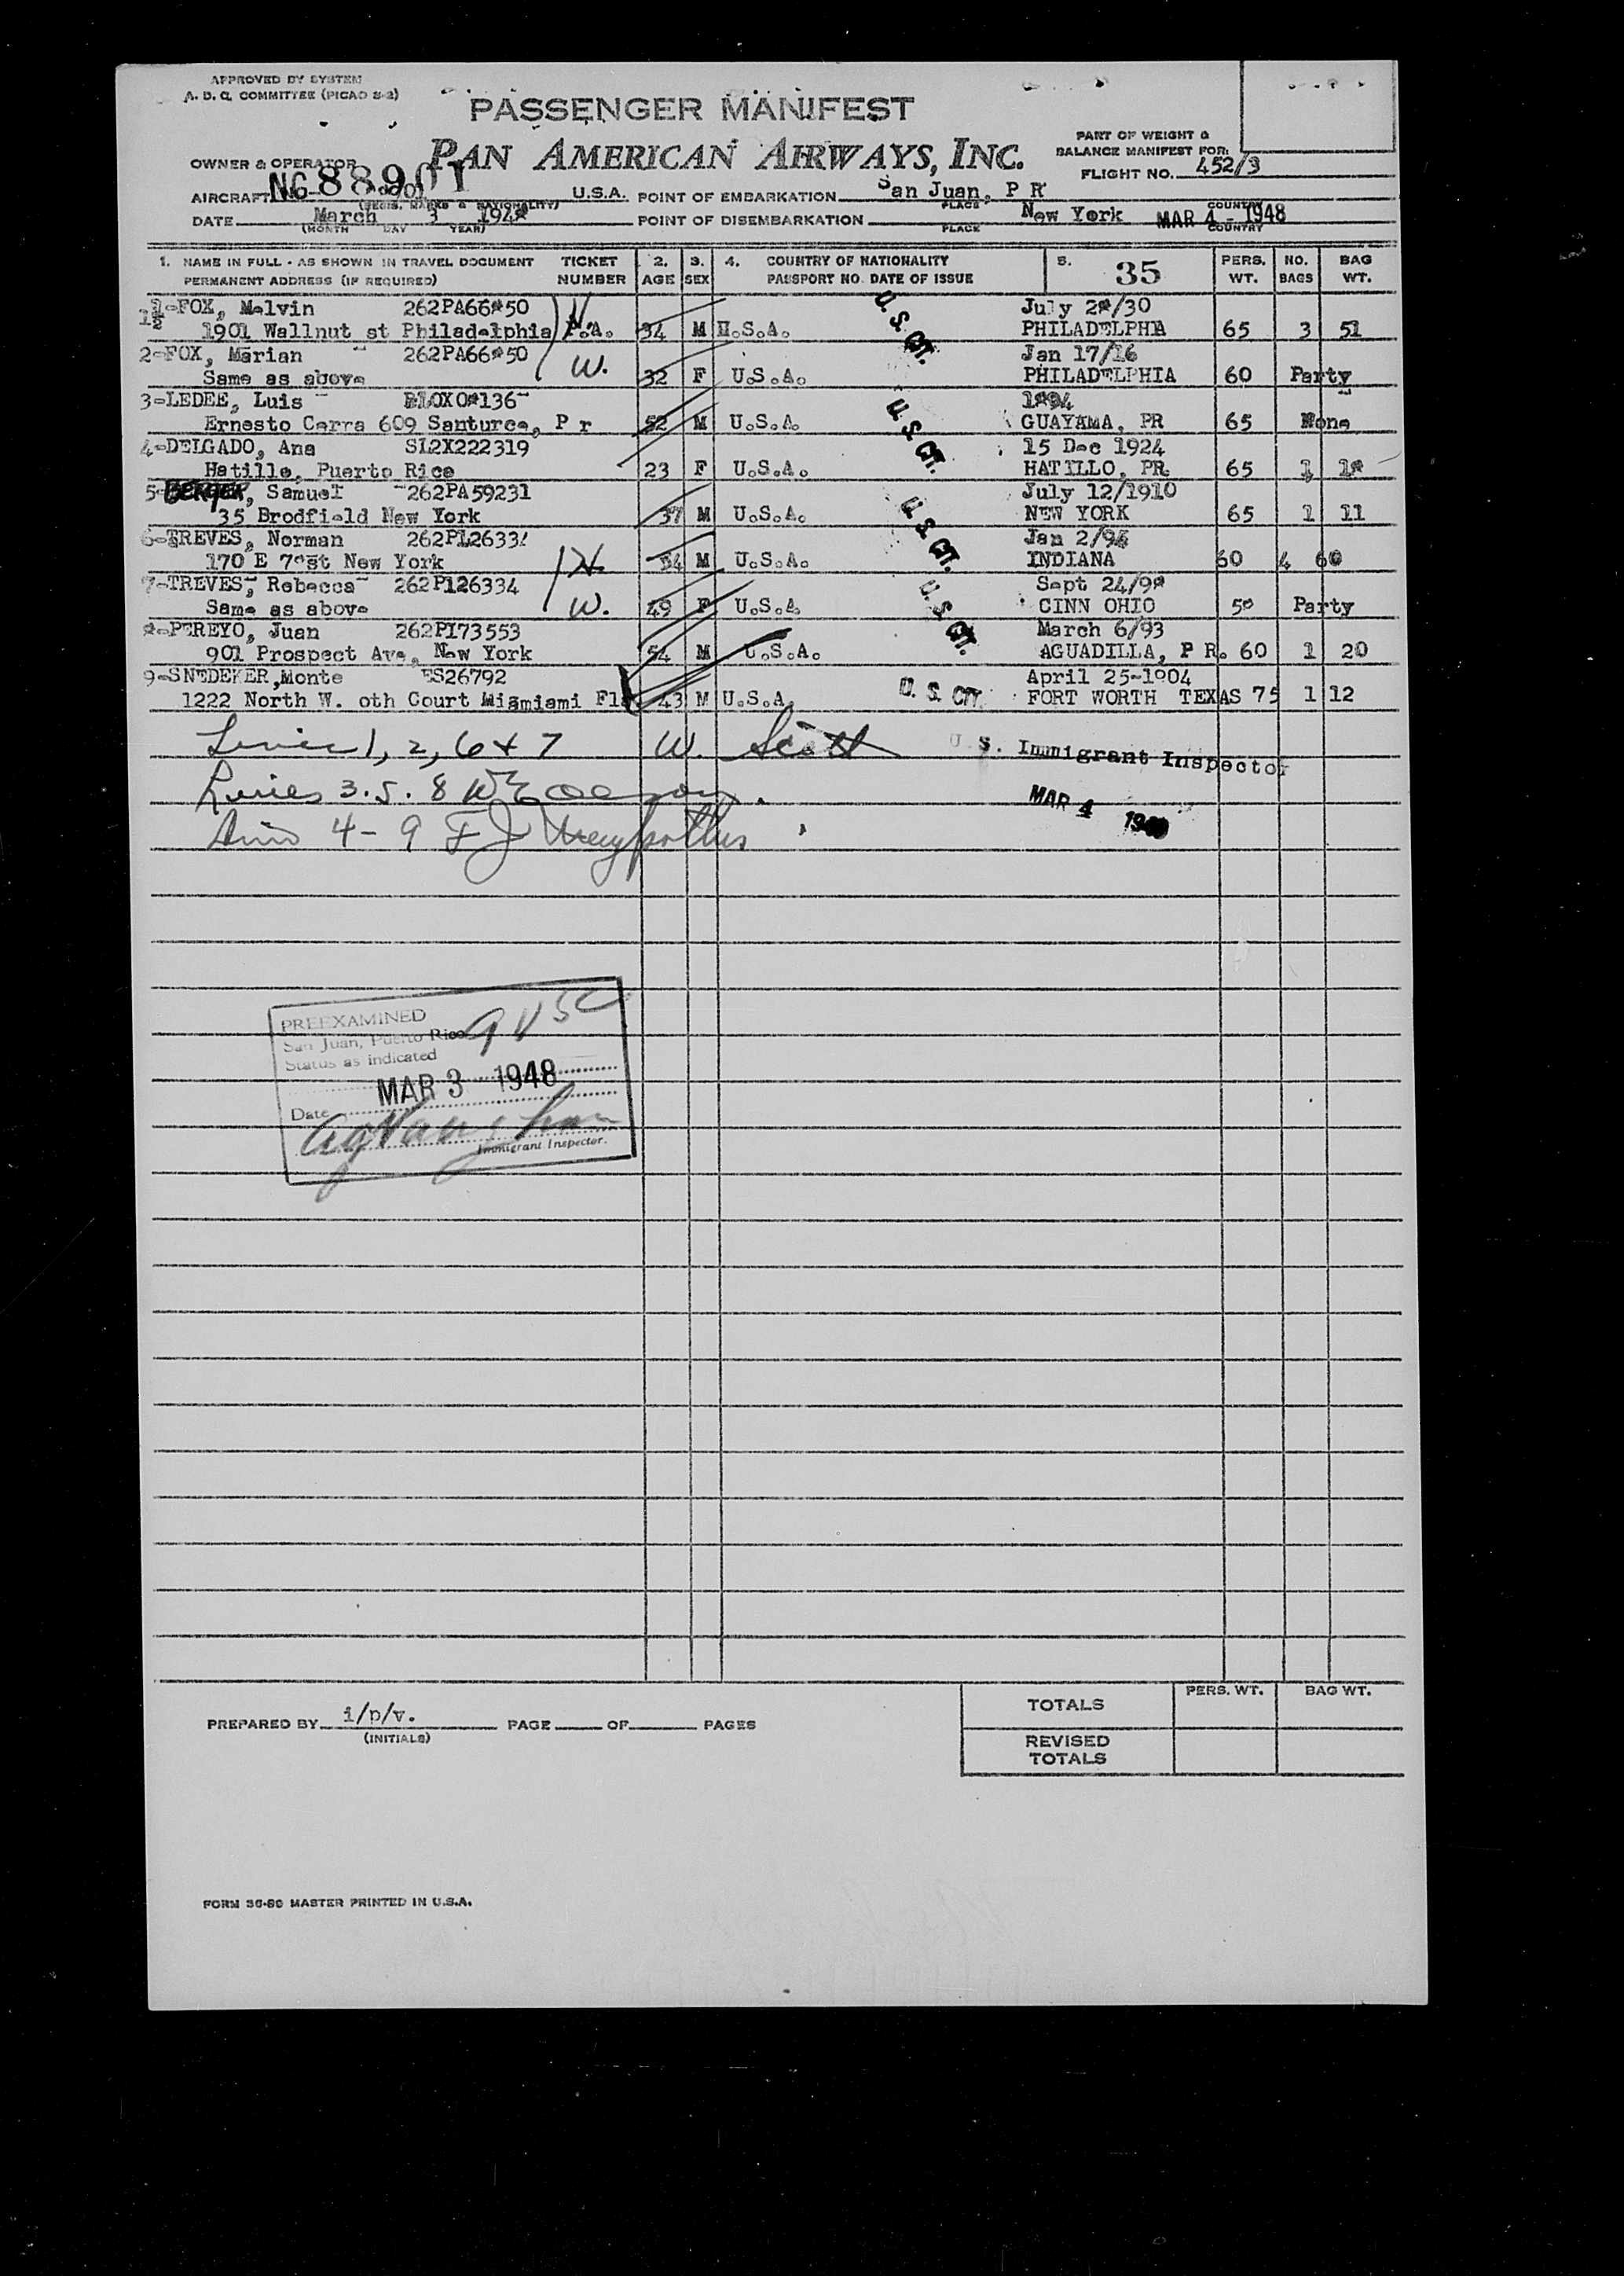 APPROVED BY SYSTEM
A. D. C. COMMITTEE (PICAO S-2)
PASSENGER MANIFEST
PAN AMERICAN AIRWAYS, INC.
OWNER & OPERATOR
PART OF WEIGHT &
BALANCE MANIFEST FOR:
FLIGHT NO. 452/3
AIRCRAFT NC 88901 U.S.A. POINT OF EMBARKATION San Juan, P R
(REGIS. MARKS & NATIONALITY) PLACE COUNTRY
DATE March 3 1948 POINT OF DISEMBARKATION New York MAR 4 - 1948
(MONTH DAY YEAR) PLACE COUNTRY
1. NAME IN FULL - AS SHOWN IN TRAVEL DOCUMENT TICKET 2. 3. 4. COUNTRY OF NATIONALITY 5. 35 PERS. NO. BAG
PERMANENT ADDRESS (IF REQUIRED) NUMBER AGE SEX PASSPORT NO. DATE OF ISSUE WT. BAGS WT.
FOX, Melvin 262PA66850 July 28/30
1901 Wallnut st Philadelphia P.A. 34 M U.S.A. PHILADELPHIA 65 3 51
2-FOX, Marian 262PA66850 Jan 17/16
Same as above W. 32 F U.S.A. PHILADELPHIA 60 Party
3-LEDEE, Luis 1894
Ernesto Cerra 609 Santurce, P r 52 M U.S.A. GUAYAMA, PR 65 None
4-DELGADO, Ana SL2X222319 15 Dec 1924
Hatillo, Puerto Rico 23 F U.S.A. HATILLO, PR 65 1 18
5-BERGER, Samuel 262PA59231 July 12/1910
35 Brodfield New York 37 M U.S.A. NEW YORK 65 1 11
6-TREVES, Norman 262P126334 Jan 2/94
170 E 78st New York 54 M U.S.A. INDIANA 60 4 60
7-TREVES, Rebecca 262P126334 Sept 24/98
Same as above W. 49 F U.S.A. CINN OHIO 50 Party
8-PEREYO, Juan 262PI73553 March 6/93
901 Prospect Ave, New York 54 M U.S.A. AGUADILLA, P R. 60 1 20
9-SNEDEKER, Monte ES26792 April 25-1904
1222 North W. 9th Court Miami Fla 43 M U.S.A. FORT WORTH TEXAS 75 1 12
U. S. CIT.
U. S. CIT.
U. S. CIT.
U. S. CIT.
U. S. CIT.
Lines 1, 2, 6 + 7 W. Scott
U. S. Immigrant Inspector
Lines 3. 5. 8
MAR 4 1948
Lines 4 - 9 F J
PREEXAMINED
San Juan, Puerto Rico 9 USC
Status as indicated
MAR 3 1948
Date
Immigrant Inspector.
PREPARED BY i/p/v. PAGE OF PAGES
(INITIALS)
TOTALS PERS. WT. BAG WT.
REVISED
TOTALS
FORM 36-80 MASTER PRINTED IN U.S.A.